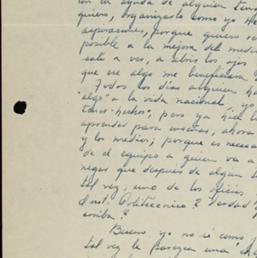 con la ayuda de alguien
quiero, organizarlo como yo
aspiraciones, porque quiero
posible a la mejora del medio
este a ver, a abrir los ojos
que ese algo me beneficiara
¿Todos los días alguien
"algo" a la vida nacional, yo
hecho; pero ya hice
aprender para enseñar, ahora
y los medios; porque es necesa
de el equipo a quien va a
negar que después de algun
tal vez, uno de los
Politécnico? Verdad
arriba?
Bueno yo no sé como
tal vez le parezca una